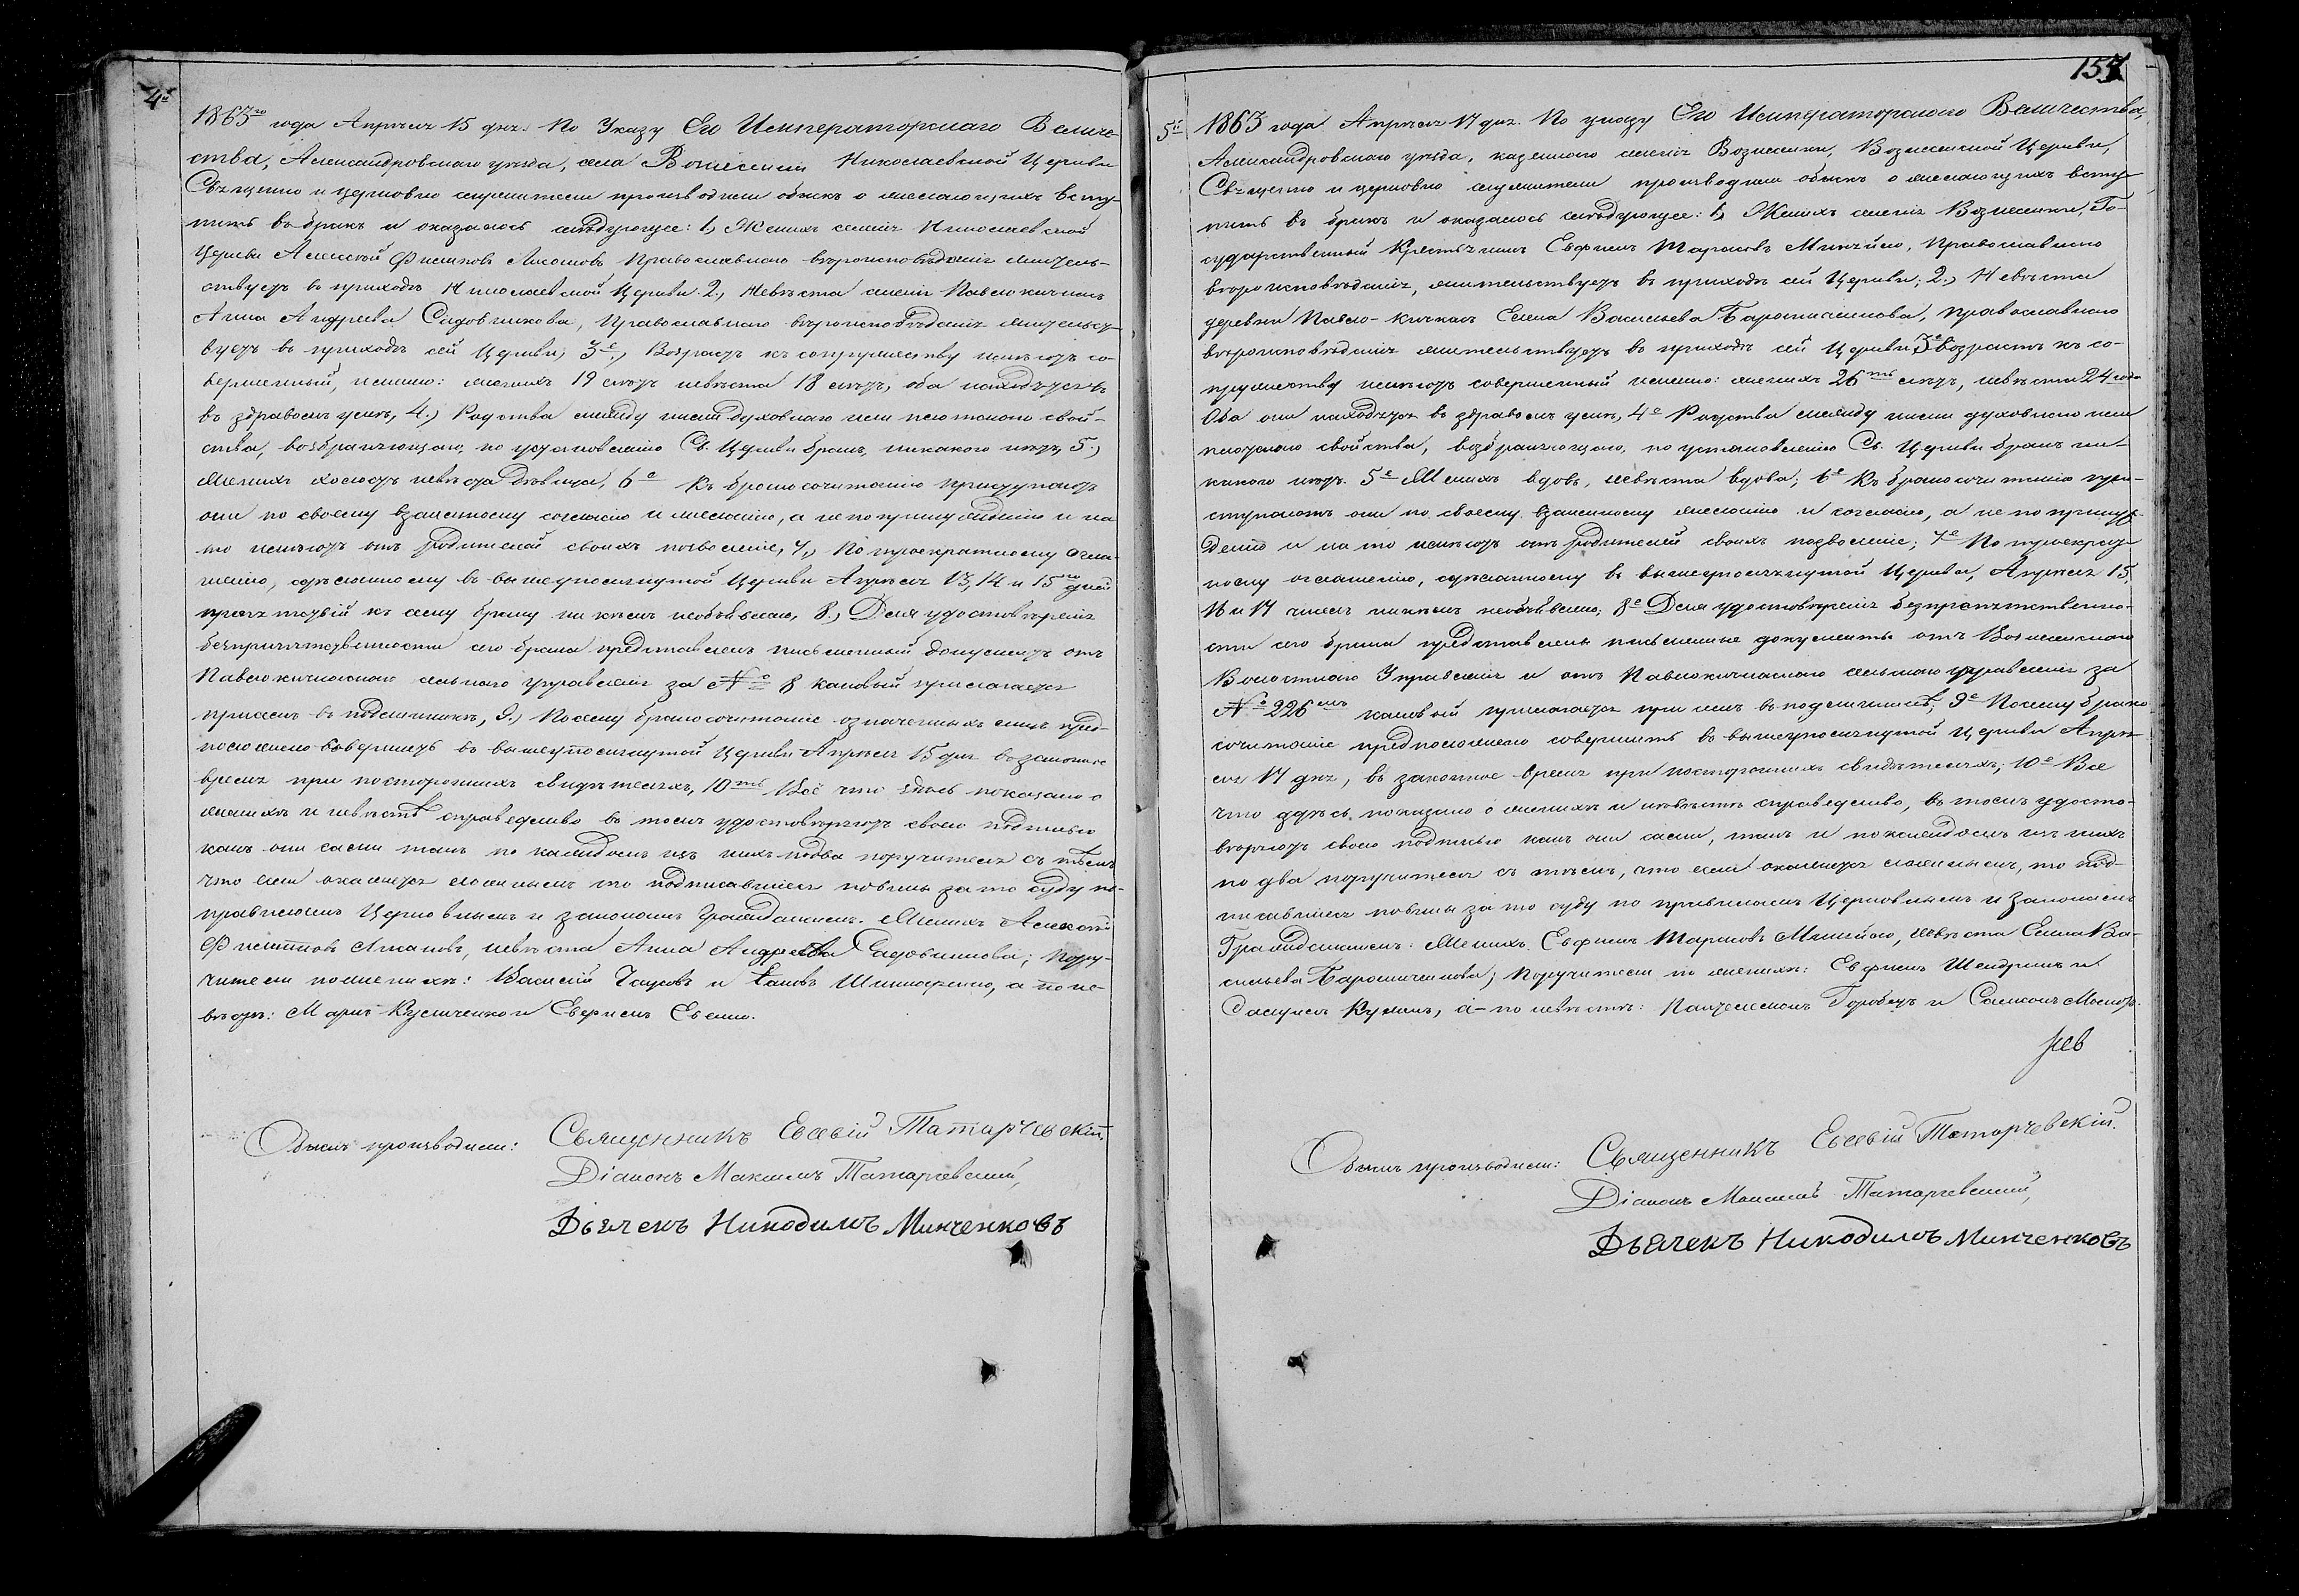 4й
1863го года Апрѣля 15 дня. По Указу Его Императорскаго Величе-
ства, Александровскаго уѣзда, села Николаевской Церкви
Священно и церковно служители производили обыскъ о желающихъ всту-
пить въ бракъ и оказалось слѣдующее: 1, Женихъ селенія Николаевской
Церкви Алексѣй Филиповъ Православнаго вѣроисповѣданія житель-
ствуетъ въ приходѣ Николаевской Церкви. 2., Невѣста селенія Павлокичкасъ
Анна Андреева Садовникова, Православнаго вѣроисповѣданія жительст-
вуетъ въ приходѣ сей Церкви, 3е, Возрастъ къ супружеству имѣютъ со-
вершенный, именно: женихъ 19 лѣтъ невѣста 18 лѣтъ, оба находятся въ
въ здравомъ умѣ, 4.) Родства между ними духовнаго или плотскаго свой-
ства, возбраняющаго, по установленію Св. Церкви бракъ, никакого нѣтъ, 5.)
Женихъ холостъ невѣста дѣвица, 6е Къ бракосочетанію приступаютъ
они по своему взаимному согласію и желанію, а не по принужденію и на
то имѣютъ отъ родителей своихъ позволеніе, 7, По троекратному огла-
шенію, сдѣланному въ вышеупомянутой Церкви Апрѣля 13, 14 и 15го дней
препятствій къ сему браку ни кѣмъ необъявлено, 8.) Для удостовѣренія
безпрепятственности сего брака представленъ письменный документъ отъ
Павлокичкаскаго сельскаго управленія за № 8 каковый прилагается
при семъ въ подлинникѣ, 9.) Посему бракосочетаніе означенныхъ лицъ пред-
положено совершить въ вышеупомянутой Церкви Апрѣля 15 дня въ законное
время при постороннихъ свидѣтеляхъ, 10ть Всё что здѣсь показано о
женихѣ и невѣстѣ справедливо въ томъ удостовѣряютъ своею подписью
какъ они сами такъ по каждомъ изъ нихъ по два поручителя съ тѣмъ
что если окажется ложнымъ то подписавшіеся повинны за то суду по
правиламъ Церковнымъ и законамъ Гражданскимъ. Женихъ Алексѣй
Филипповъ невѣста Анна Андреева Садовникова; Пору-
чители по женихѣ: Василій и а по не-
вѣстѣ: Кузмиченко и Евфимъ
Обыскъ производили:
Священникъ Евсевій Татарчевскій.
Діаконъ Максимъ Татарчевскій,
Дьячекъ Никодимъ Минченковъ
157
5й
1863 года Апрѣля 17 дня. По указу Его Императорскаго Величества,
Александровскаго уѣзда, казеннаго селенія Вознесенки, Вознесенской Церкви,
Священно и церковно служители производили обыскъ о желающихъ всту-
пить въ бракъ и оказалось слѣдующее: 1, Женихъ селенія Вознесенки, Го-
сударственный Крестьянинъ Евфимъ Тарасовъ Православнаго
вѣроисповѣданія, жительствуетъ въ приходѣ сей Церкви; 2.) Невѣста
деревни Павло-кичкасъ Елена Васильева православнаго
вѣроисповѣданія жительствуетъ въ приходѣ сей Церкви 3е Возрастъ къ су-
пружеству имѣютъ совершенный именно: женихъ 26ть лѣтъ, невѣста 24 года
Оба они находятся въ здравомъ умѣ, 4е Родства между ними духовнаго или
плотскаго свойства, возбраняющаго, по установленію Св. Церкви бракъ ни-
какого нѣтъ. 5е Женихъ вдовъ, невѣста вдова; 6е Къ бракосочетанію при-
ступаютъ они по своему взаимному желанію и согласію, а не по принуж-
денію и на то имѣютъ отъ родителей своихъ позволеніе; 7е По троекрат-
ному оглашенію, сдѣланному въ вышеупомянутой Церкви, Апрѣля 15,
16 и 17 чиселъ никѣмъ необъявлено; 8е Для удостовѣренія безпрепятственно-
сти сего брака представлены письменные документы отъ Вознесенскаго
Волостнаго Управленія и отъ Павлокичкаскаго сельскаго управленія за
№ 226мъ каковый прилагается при семъ въ подлинникѣ, 9е Посему брако-
сочетаніе предположено совершить въ вышеупомянутой Церкви Апрѣ-
ля 17 дня, въ законное время при постороннихъ свидѣтеляхъ; 10е Все
что здѣсь показано о женихѣ и невѣстѣ справедливо, въ томъ удосто-
вѣряютъ своею подписью какъ они сами, такъ и по каждомъ изъ нихъ
по два поручителя съ тѣмъ, что если окажется ложнымъ, то под-
писавшіеся повинны за то суду по правиламъ Церковнымъ и законамъ
Гражданскимъ: Женихъ Евфимъ Тарасовъ невѣста Елена Ва-
сильева Поручители по женихѣ: Евфимъ и
а по невѣстѣ: Пантелемонъ Горобецъ и
Обыскъ производили:
Священникъ Евсевій Татарчевскій.
Діаконъ Максимъ Татарчевскій,
Дьячекъ Никодимъ Минченковъ